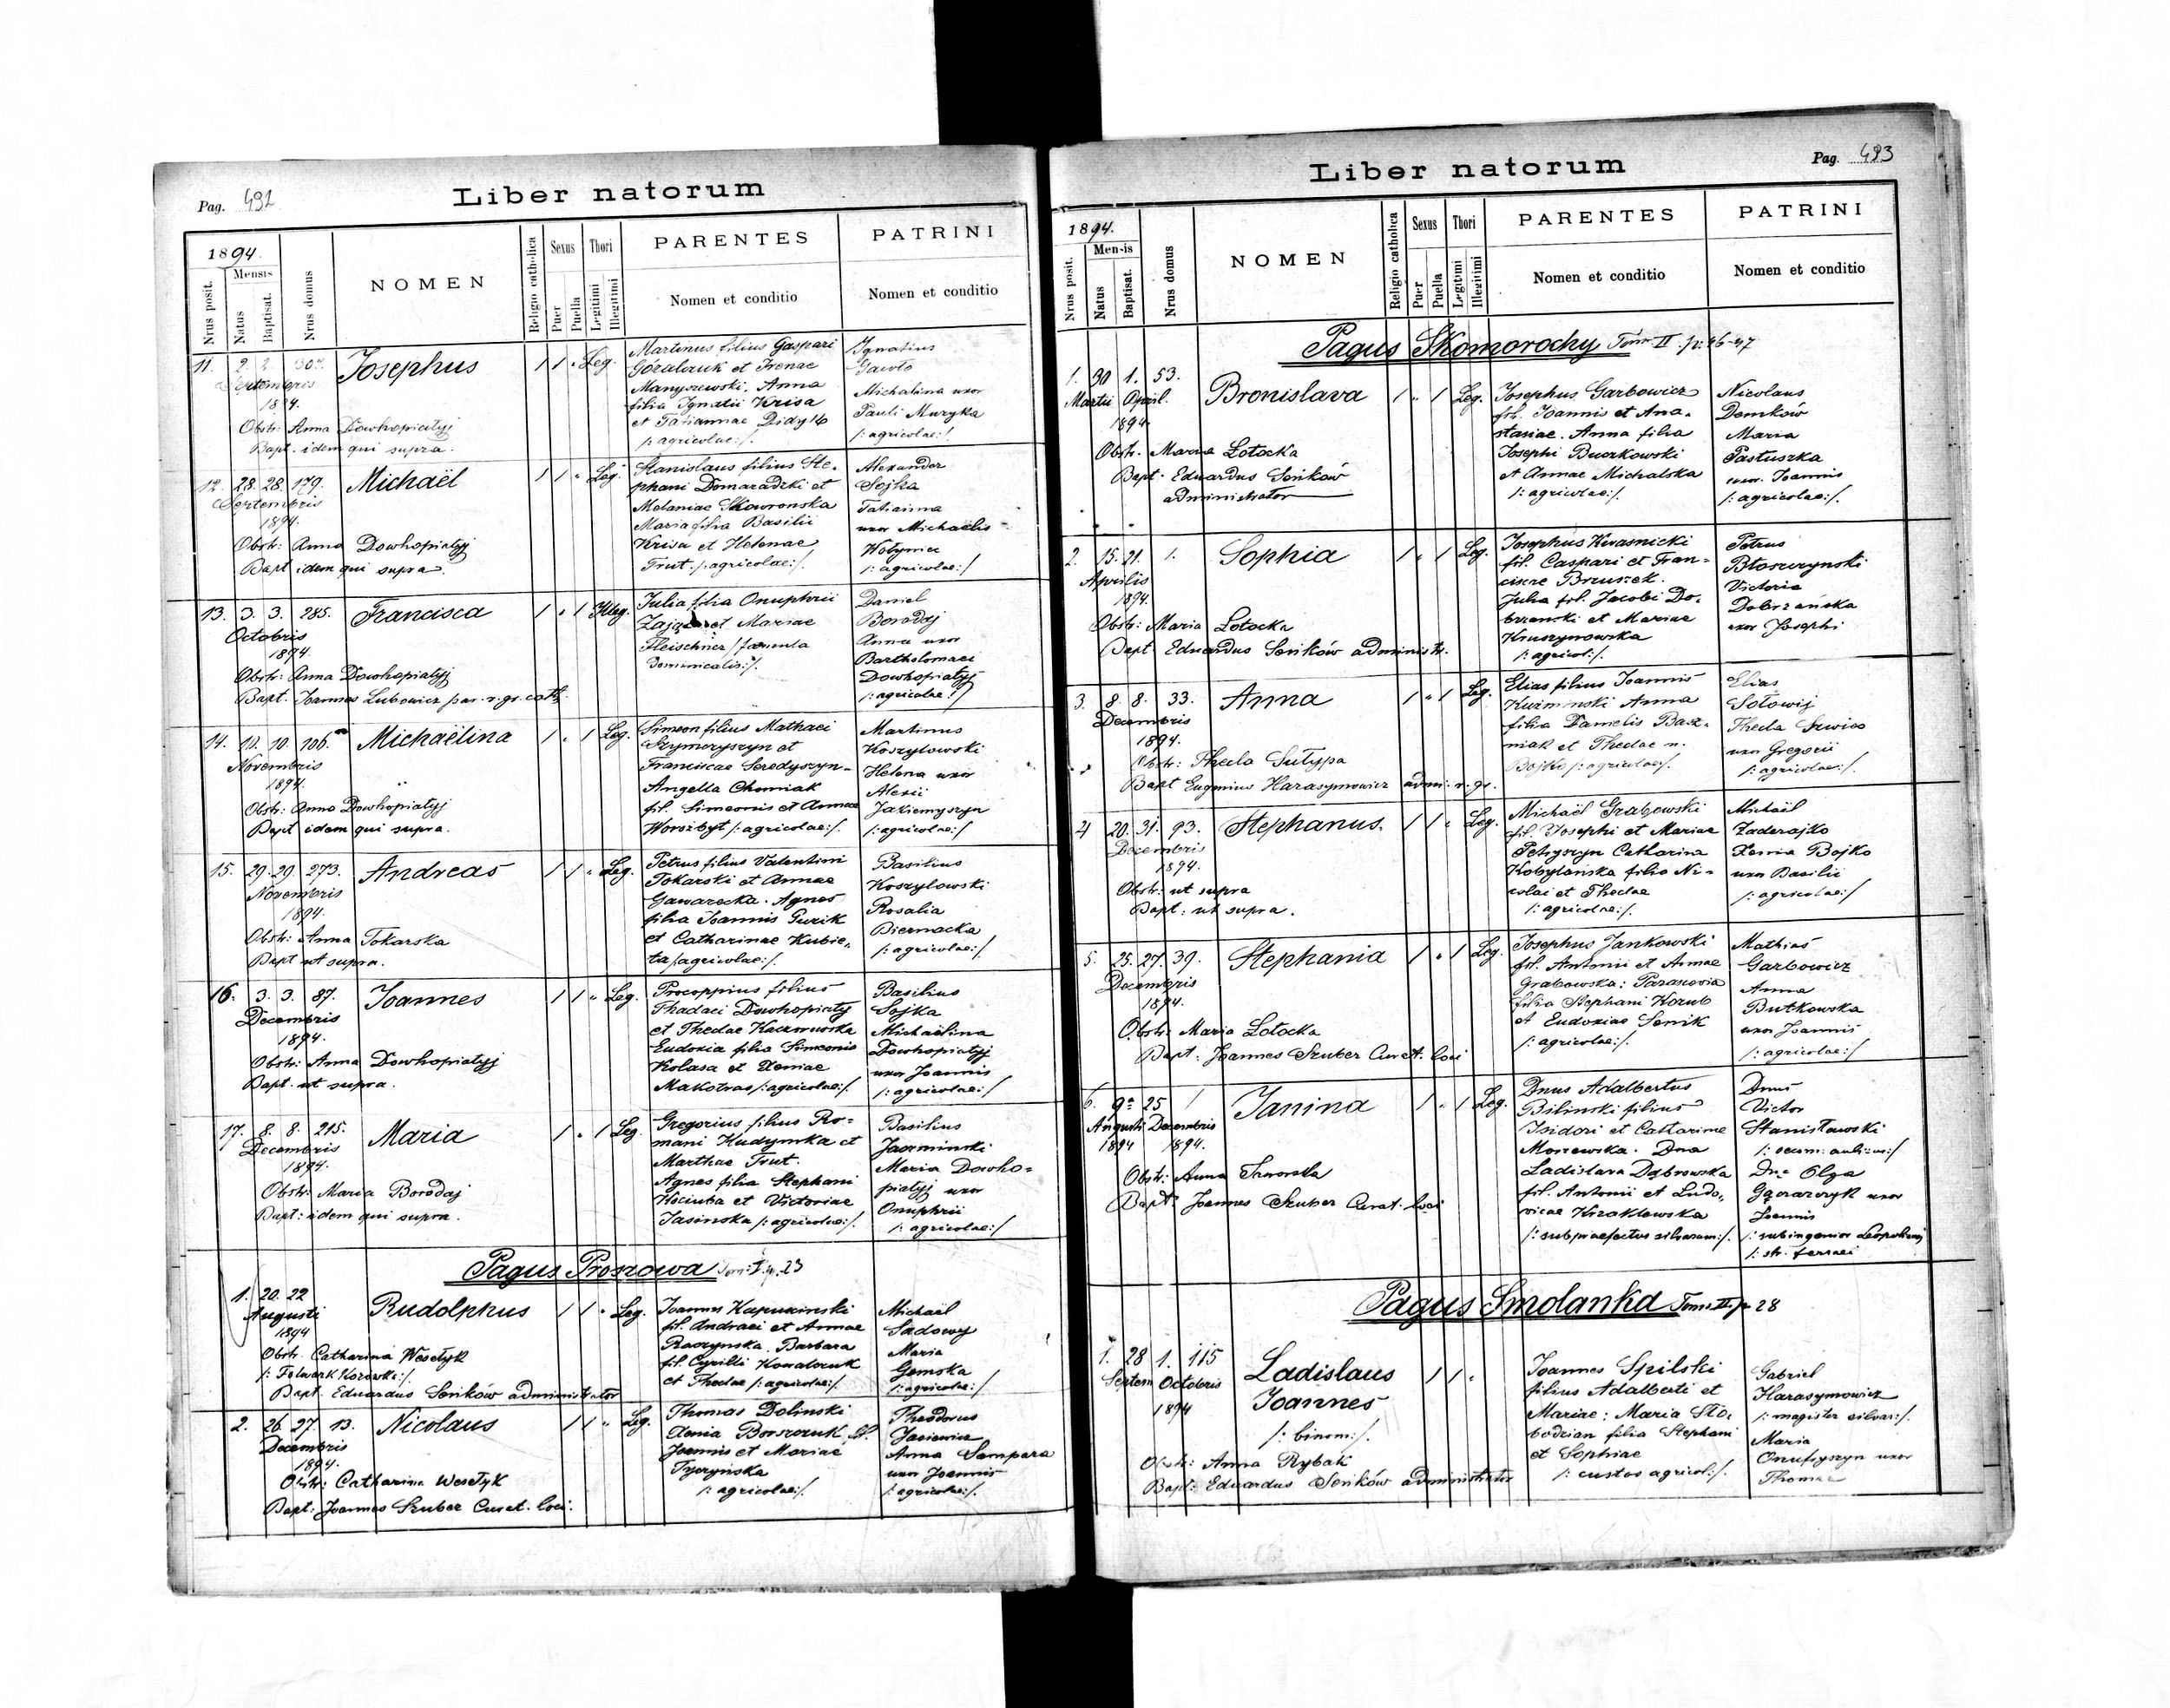 Pag. 492
Liber natorum
1894.
Nrus posit.
Mensis
Natus
Baptisat.
Nrus domus
NOMEN
Religio catholica
Sexus
Puer
Puella
Thori
Legitimi
Illegitimi
PARENTES
Nomen et conditio
PATRINI
Nomen et conditio
11. 2. 2. Josephus 1 1 " Leg.
Septembris
1894.
Obstr: Anna Dowhopiatyj
Bapt. idem qui supra.
Martinus filius Gaspari
Góralczuk et Irenae
Manyszewski. Anna
filia Ignatii Krisa
et Tatiannae Didyk
/: agricolae:/.
Ignatius
Gawło
Michalina uxor
Pauli Muryka
/: agricolae:/.
12. 28. 28. 179. Michaël 1 1 " Leg.
Septembris
1894.
Obstr: Anna Dowhopiatyj
Bapt idem qui supra.
Stanislaus filius Ste-
phani Domaradzki et
Melaniae Skowronska
Maria filia Basilii
Krisa et Helenae
Trut /: agricolae:/.
Alexander
Sojka
Tatianna
uxor Michaelis
Wołyniec
/: agricolae:/
13. 3. 3. 285. Francisca 1 " 1 Illeg.
Octobris
1894.
Obstr: Anna Dowhopiatyj
Bapt. Joannes Lubowicz par. r. gr. cath.
Julia filia Onuphrii
Zając et Mariae
Fleischner /: famula
dominicalis:/.
Daniel
Borodaj
Anna uxor
Bartholomaei
Dowhopiatyj
/: agricolae:/
14. 10. 10. 106. Michaëlina 1 " 1 Leg.
Novembris
1894.
Obstr: Anna Dowhopiatyj
Bapt idem qui supra.
Simeon filius Mathaei
Szymczyszyn et
Franciscae Seredyszyn-
Angella Chomiak
fil. Simeonis et Annae
Worożbyt /: agricolae:/.
Martinus
Koszylowski
Helena uxor
Alexii
Jakiemyszyn
/: agricolae:/
15. 29. 29. 273. Andreas 1 1 " Leg.
Novembris
1894.
Obstr: Anna Tokarska
Bapt ut supra.
Petrus filius Valentini
Tokarski et Annae
Gawarecka. Agnes
filia Joannis Guzik
et Catharinae Kubie-
ta /: agricolae:/.
Basilius
Koszylowski
Rosalia
Biernacka
/: agricolae:/
16. 3. 3. 87. Joannes 1 1 " Leg.
Decembris
1894.
Obstr: Anna Dowhopiatyj
Bapt. ut supra.
Procoppius filius
Thadaei Dowhopiatyj
et Theclae Kaczmurska
Eudoxia filia Simeonis
Kolasa et Xeniae
Makotras /: agricolae:/.
Basilius
Sojka
Michaelina
Dowhopiatyj
uxor Joannis
/: agricolae:/
17. 8. 8. 215. Maria 1 " 1 Leg.
Decembris
1894.
Obstr: Maria Borodaj
Bapt: idem qui supra.
Gregorius filius Ro-
mani Kudymka et
Marthae Trut.
Agnes filia Stephani
Kociuba et Victoriae
Jasinska /: agricolae:/.
Basilius
Jaominski
Maria Dowho-
piatyj uxor
Onuphrii
/: agricolae:/
Pagus Proszowa Tom: I. p. 23
1. 20. 22 Rudolphus 1 1 " Leg.
Augusti
1894
Obstr. Catharina Wesełyk
/: Folwark Korowki:/.
Bapt. Eduardus Seńków administrator
Joannes Kapuscinski
fil. Andraei et Annae
Raczynska. Barbara
fil. Cyrilli Kowalczuk
et Theclae /: agricolae:/.
Michael
Sadowy
Maria
Gemska
/: agricolae:/
2. 26. 27. 13. Nicolaus 1 1 " Leg.
Decembris
1894.
Obstr: Catharina Wesełyk
Bapt: Joannes Szuber Curat. loci.
Thomas Dolinski
Xenia Borszczuk fil.
Joannis et Mariae
Tyczyńska
/: agricolae:/.
Theodorus
Jasiewicz
Anna Sampara
uxor Joannis
/: agricolae:/.
Pag. 493
Liber natorum
1894.
Nrus posit.
Mensis
Natus
Baptisat.
Nrus domus
NOMEN
Religio catholica
Sexus
Puer
Puella
Thori
Legitimi
Illegitimi
PARENTES
Nomen et conditio
PATRINI
Nomen et conditio
Pagus Skomorochy Tom II. p. 46-47
1. 30 1. 53. Bronislava 1 " 1 Leg.
Martii April.
1894
Obstr. Maria Łotocka
Bapt: Eduardus Seńków
administrator
Josephus Garbowicz
fil. Joannis et Ana-
stasiae. Anna filia
Josephi Buczkowski
et Annae Michalska
/: agricolae:/.
Nicolaus
Demków
Maria
Pastuszka
uxor. Joannis
/: agricolae:/.
2. 15. 21. 1. Sophia 1 " 1 Leg.
Aprilis
1894.
Obstr: Maria Łotocka
Bapt: Eduardus Seńków administr.
Josephus Kwasnicki
fil. Caspari et Fran-
ciscae Brzuszek.
Julia fil. Jacobi Do-
brzanski et Mariae
Kruszynowska
/: agricol:/.
Petrus
Błoszczynski
Victoria
Dobrzańska
uxor Josephi
3. 8. 8. 33. Anna 1 " 1 Leg.
Decembris
1894.
Obstr: Thecla Sutypa
Bapt Eugenius Harasymowicz adm: r. gr.
Elias filius Joannis
Kuzminski Anna
filia Danielis Basz-
niak et Theclae n.
Bojko /: agricolae:/.
Elias
Sołowij
Thecla Szwiec
uxor Gregorii
/: agricolae:/.
4 20. 31. 93. Stephanus. 1 1 " Leg.
Decembris
1894.
Obstr: ut supra
Bapt: ut supra.
Michaël Grabowski
fil. Josephi et Mariae
Petryszyn Catharina
Kobylanska filia Ni-
colai et Theclae
/: agricolae:/.
Michaël
Zaderajko
Xenia Bojko
uxor Basilii
/: agricolae:/
5. 25. 27. 39. Stephania 1 " 1 Leg.
Decembris
1894.
Obstr: Maria Łotocka
Bapt: Joannes Szuber Curat. loci
Josephus Jankowski
fil. Antonii et Annae
Grabowska: Parascevia
filia Stephani Kozub
et Eudoxiae Senik
/: agricolae:/.
Mathias
Garbowicz
Anna
Butkowska
uxor Joannis
/: agricolae:/
6. 9. 25 1 Janina 1 " 1 Leg.
Augusti Decembris
1894 1894.
Obstr: Anna
Bapt: Joannes Szuber Curat. loci
Dnus Adalbertus
Bilinski filius
Isidori et Catharinae
Morzewska. Dna
Ladislava Dąbrowska
fil. Antonii et Ludo-
vicae Kizaklewska
/: subpraefectus silvarum:/.
Dnus
Victor
Stanisławski
Dna Olga
uxor
Joannis
/: subingenior
/: str. ferraei
Pagus Smolanka Tom: II. p. 28
1. 28 1. 115 Ladislaus 1 1 "
Septem Octobris Joannes
1894
/: binom:/.
Obstr: Anna Rybak
Bapt: Eduardus Seńków administrator
Joannes Spilski
filius Adalberti et
Mariae: Maria Sło-
bodzian filia Stephani
et Sophiae
/: custos agricol:/.
Gabriel
Harasymowicz
/: magister silvar:/.
Maria
Onufryszyn uxor
Thomae